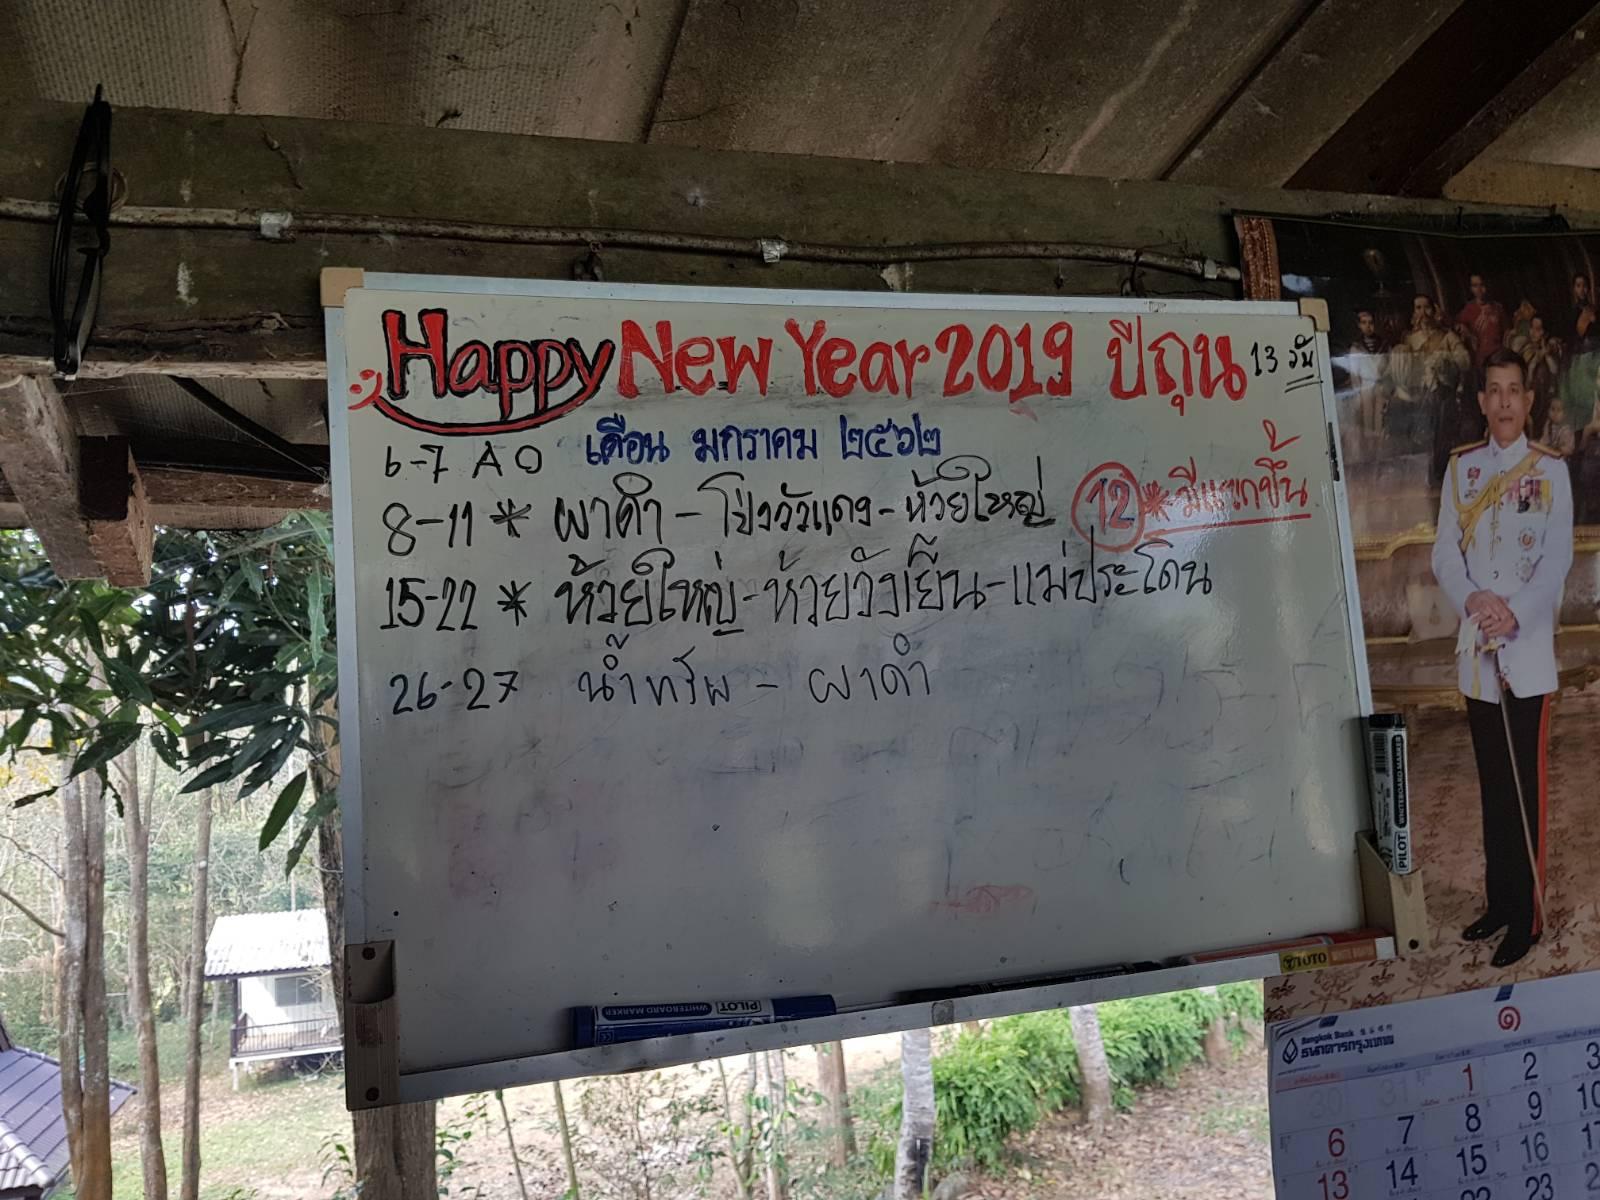 Happy New Year 2019 ปีกุน 13 วัน
6-7 AO เดือน มกราคม ๒๕๖๒
8-11 * ผาดำ - โป่งวัวแดง - ห้วยใหญ่ 12 * มีแขกขึ้น
15-22 * ห้วยใหญ่ - ห้วยวังเยีน - แม่ประโดน
26-27 น้ำทรัพ - ผาดำ
PILOT
WHITEBOARD MARKER
PILOT
WHITEBOARD MARKER
TOTO
๑
Bangkok Bank
ธนาคารกรุงเทพ
30 31 1 2 3
6 7 8 9 10
13 14 15 16
22 23